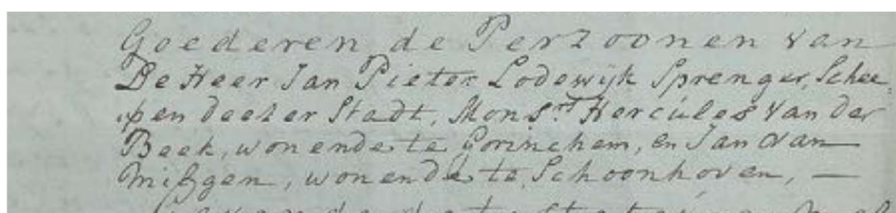 Goederen de Perzoonen van
De Heer Jan Pieter Lodewijk Sprenger, Schee-
pen deezer Stadt, Monsr. Hercules van der
Beek, wonende te Gorinchem, en Jan van
Mißgen, wonende te Schoonhoven, —